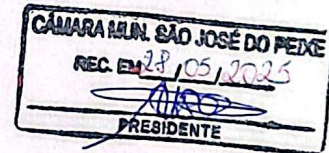 CÂMARA MUN. SÃO JOSÉ DO PEIXE
REC. EM 28 / 05 / 2025
PRESIDENTE